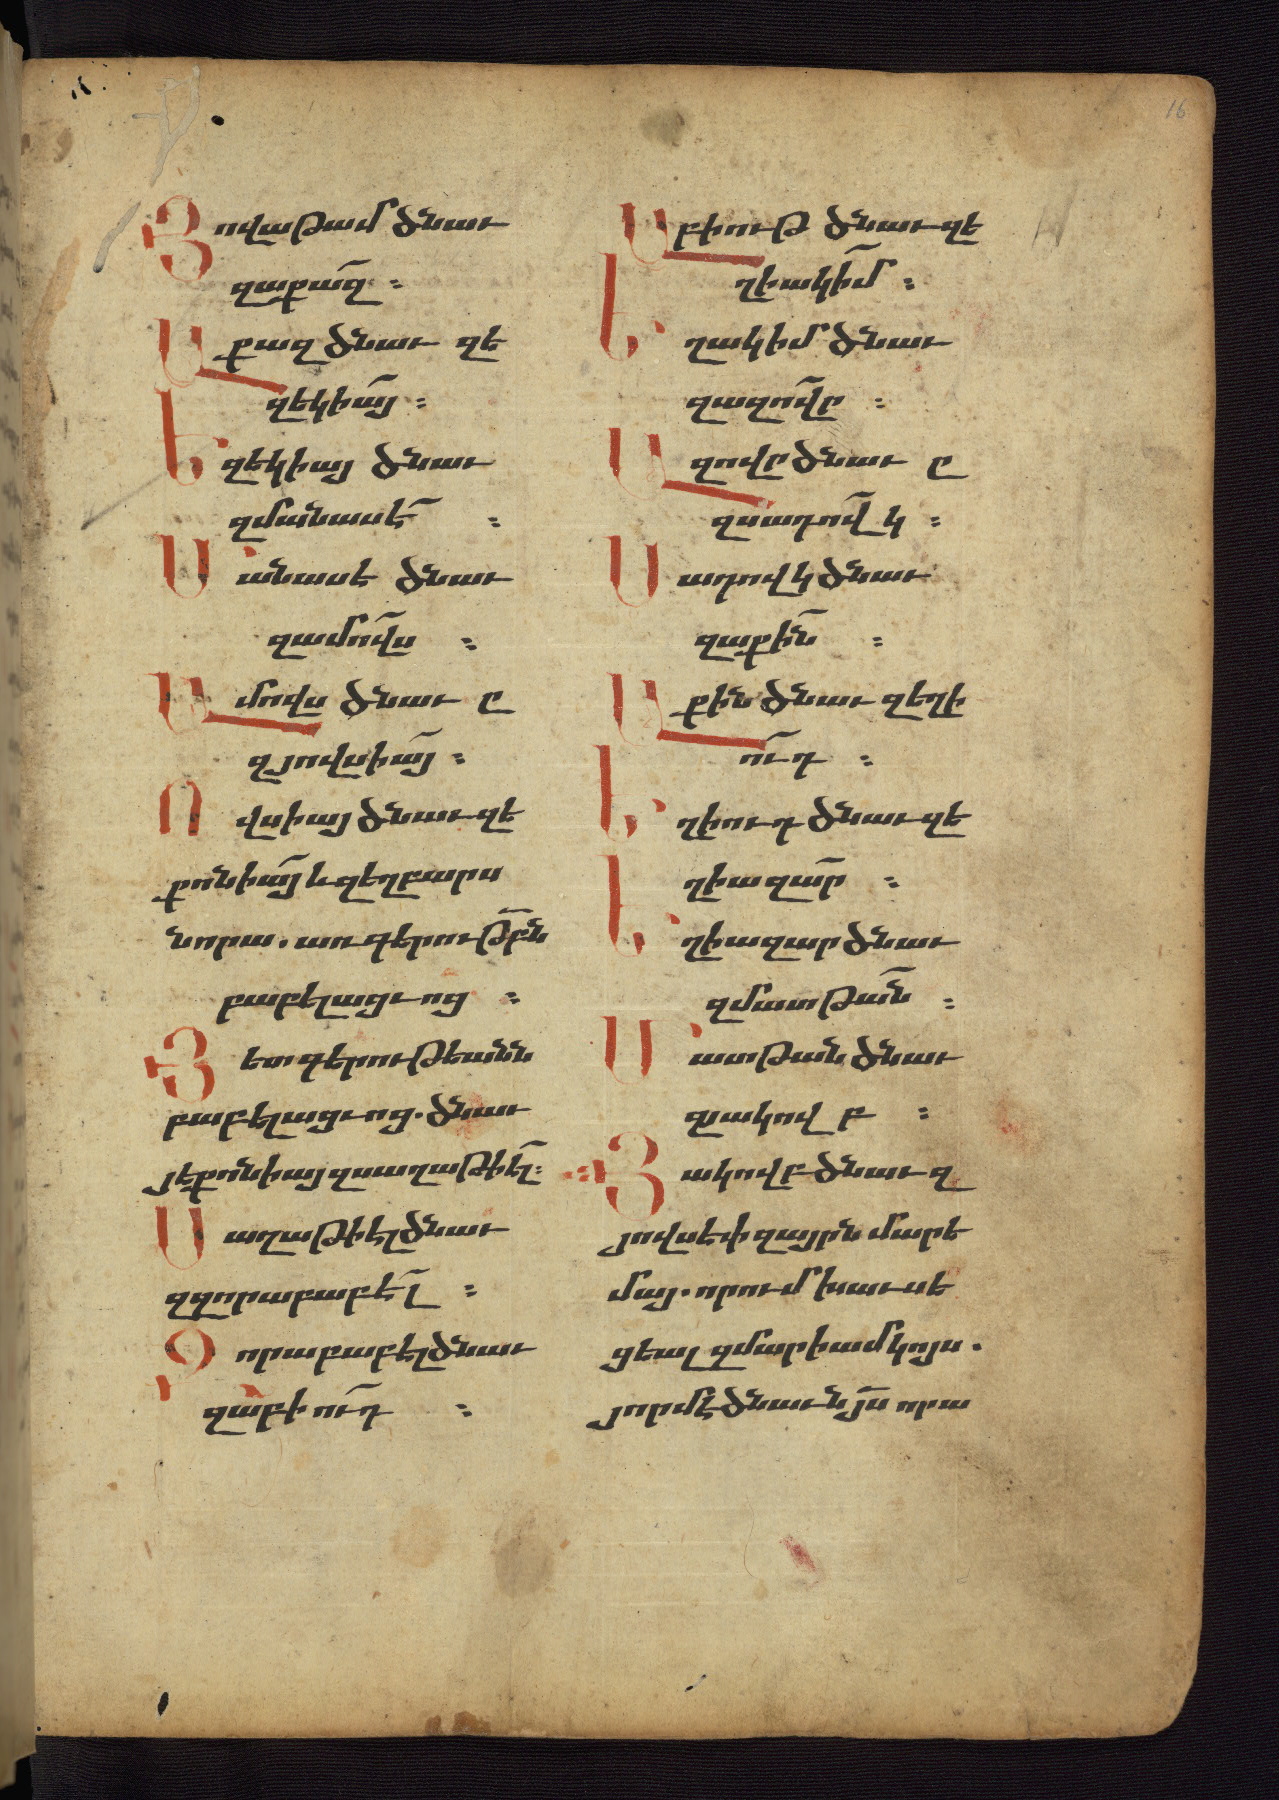 16
Յովաթամ ծնաւ
զաքազ :
Աքազ ծնաւ զե
զեկիայ :
Եզեկիայ ծնաւ
զմանասէ :
Մանասէ ծնաւ
զամովս :
Ամովս ծնաւ ը
զյովսիայ :
Ովսիայ ծնաւ զե
քոնիայ և զեղբարս
նորա . առ գերութբն
բաբելացւոց :
Յետ գերութեանն
բաբելացւոց . ծնաւ
յեքոնիայ զսաղաթիէլ :
Սաղաթիէլ ծնաւ
զզորաբաբէլ :
Զորաբաբէլ ծնաւ
զաբիուդ :
Աբիութ ծնաւ զե
ղիակիմ :
Եղակիմ ծնաւ
զազովր :
Ազովր ծնաւ ը
զսադովկ :
Սադովկ ծնաւ
զաքին :
Աքին ծնաւ զեղի
ուդ :
Եղիուդ ծնաւ զե
ղիազար :
Եղիազար ծնաւ
զմատթան :
Մատթան ծնաւ
զյակովբ :
Յակովբ ծնաւ զ
յովսէփ զայրն մարե
մայ . որում խաւսե
ցեալ զմարիամ կոյս .
յորմէ ծնաւ ն յս որա